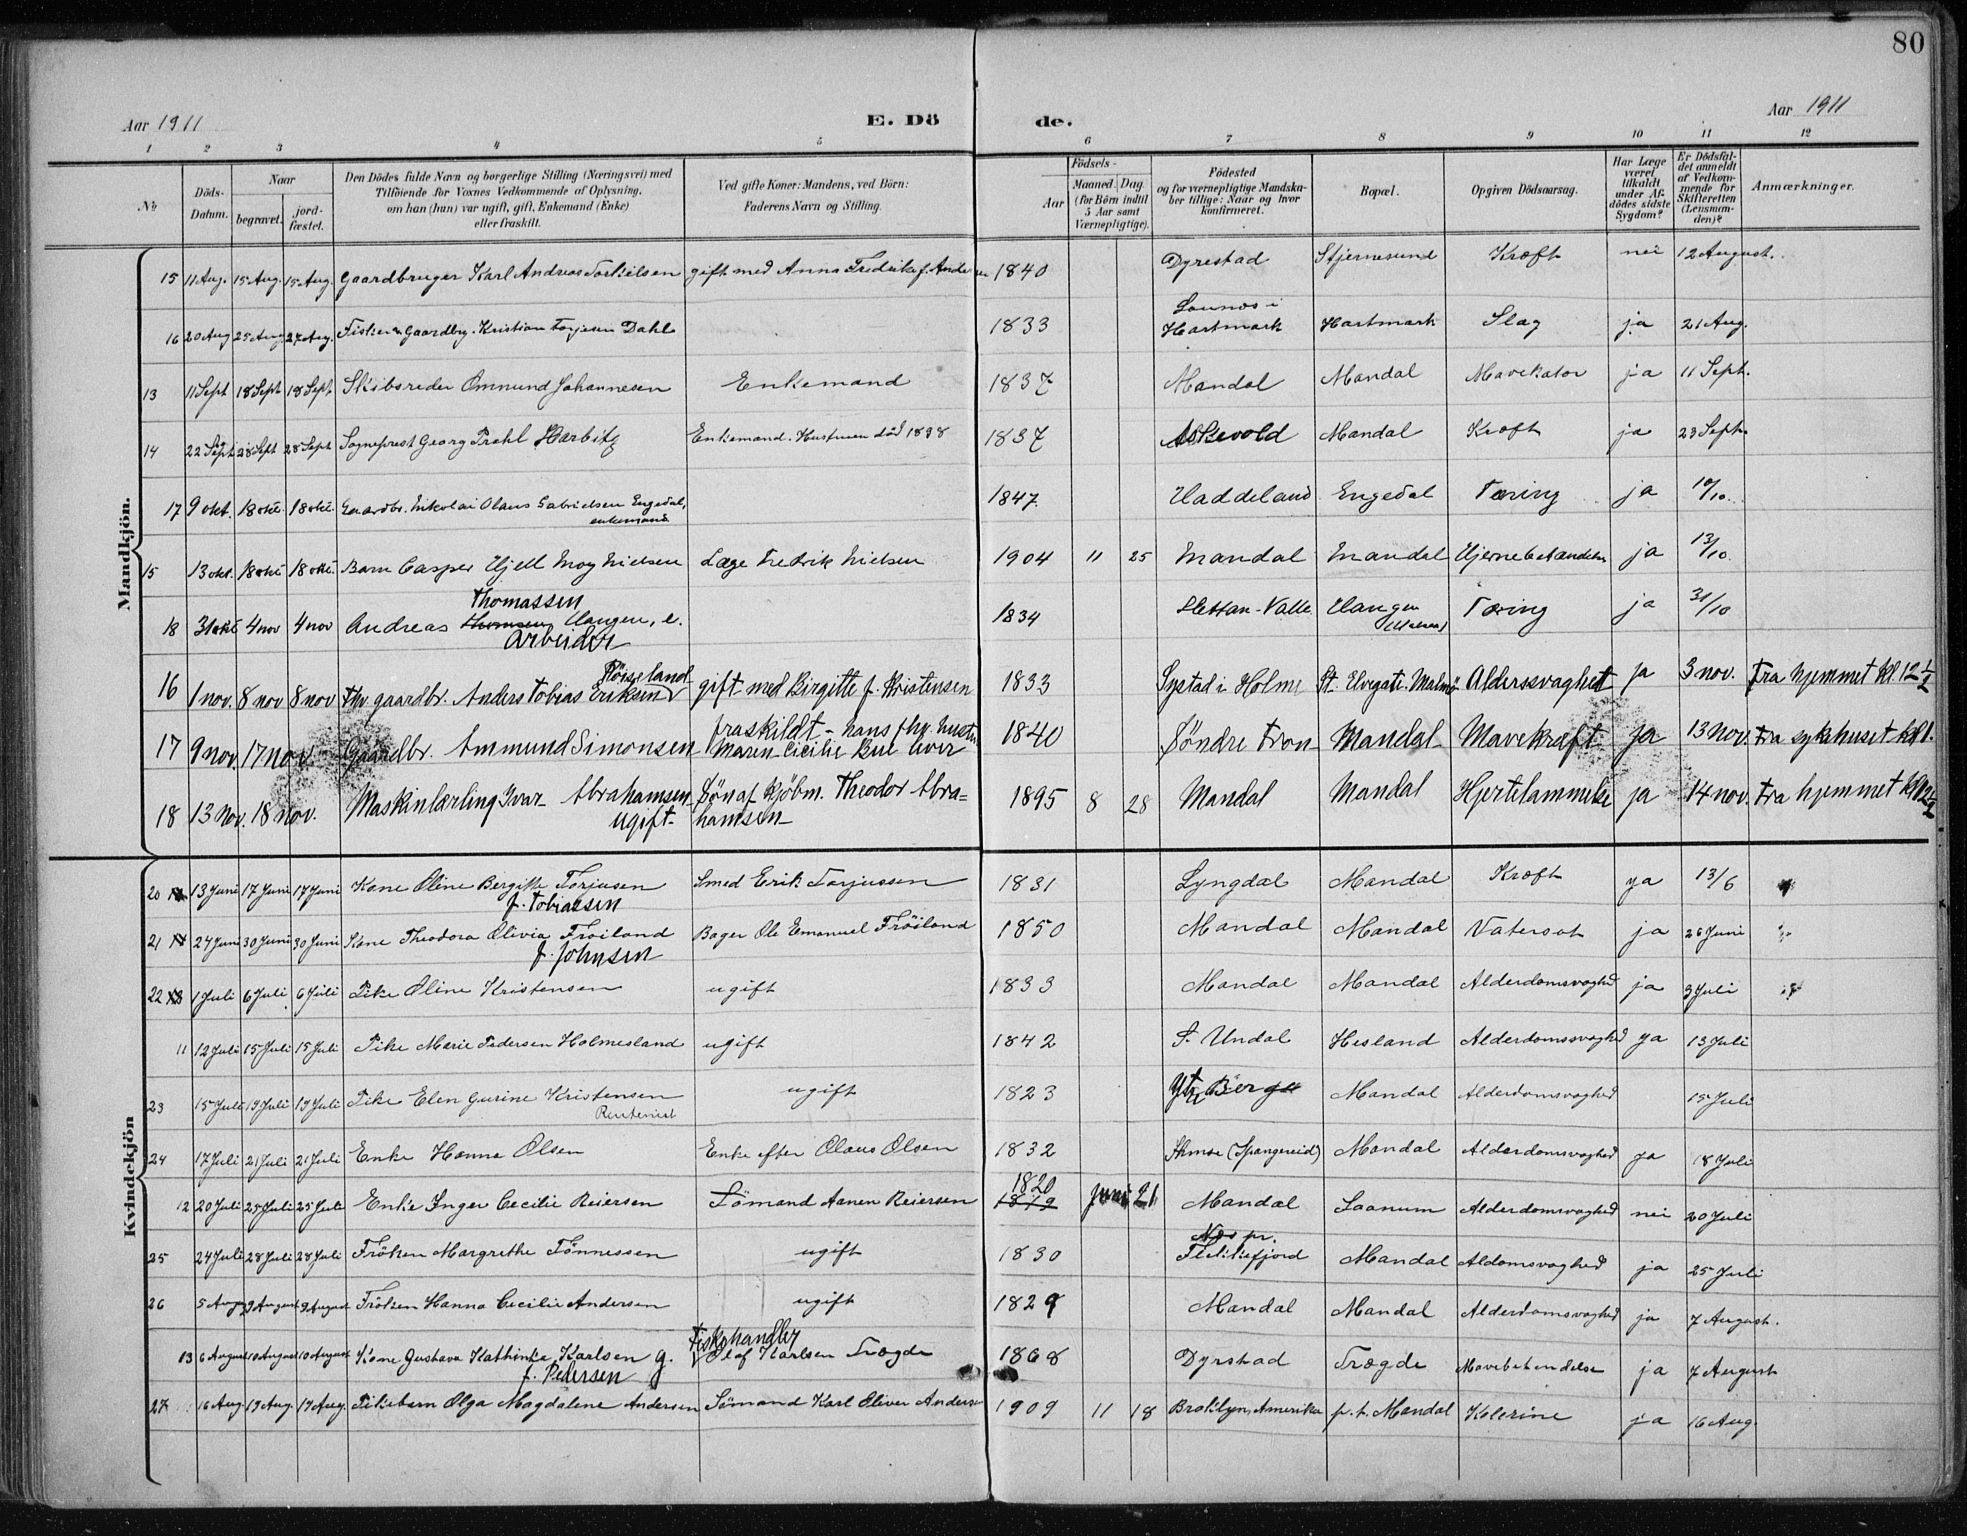 80
Aar 1911
E. Dö
de.
Aar 1911
1 2 3 4 5 6 7 8 9 10 11 12
No
Döds-Datum.
Naar
begravet.
jord-fæstet.
Den Dödes fulde Navn og borgerlige Stilling (Næringsvei) med
Tilföiende for Voxnes Vedkommende af Oplysning,
om han (hun) var ugift, gift, Enkemand (Enke)
eller fraskilt.
Ved gifte Koner: Mandens, ved Börn:
Faderens Navn og Stilling.
Födsels-
Aar
Maaned. Dag.
(for Börn indtil
5 Aar samt
Værnepligtige).
Födested
og for værnepligtige Mandska-
ber tillige: Naar og hvor
konfirmeret.
Bopæl.
Opgiven Dödsaarsag.
Har Læge
været
tilkaldt
under Af-
dödes sidste
Sygdom?
Er Dödsfal-
det anmeldt
af Vedkom-
mende for
Skifteretten
(Lensman-
den)?
Anmærkninger.
Mandkjön.
15 11 Aug. 15 Aug. 15 Aug. Gaardbruger Karl Andreas Torkelsen gift med Anna Fredrikke f. Andersen 1840 Dyrestad Stjernesund Kræft nei 12 August.
16 20 Aug 25 Aug 27 Aug. Fisker & Gaardbr. Kristian Torjesen Dahl 1833 Hartmark Hartmark Slag ja 21 Aug.
13 11 Sept 18 Sept 18 Sept Skibsreder Ommund Johannesen Enkemand 1837 Mandal Mandal Mavekatar ja 11 Sept.
14 22 Sept 28 Sept 28 Sept Sogneprest Georg Prahl Harbitz Enkemand. Hustruen död 1898 1837 Askevold Mandal Kræft ja 23 Sept.
17 9 okt. 18 okt. 18 okt. Gaardbr. Nikolai Olaus Gabrielsen Engedal, enkemand 1847. Haddeland Engedal Tæring ja 10/10.
15 13 okt. 18 okt 18 okt. Barn Casper Kjell Moy Nielsen Læge Fredrik Nielsen 1904 11 25 Mandal Mandal Hjernebetændelse ja 13/10.
18 31 okt 4 nov 4 nov Andreas Thomassen Haugen, e. Arbeider 1834 Valle Haugen Tæring ja 31/10
16 1 nov. 8 nov 8 nov fhv gaardbr. Anders Tobias Eriksen Röiseland gift med Birgitte f. Kristensen 1833 Systad i Holme St. Elvegate. Malmö Alderssvaghet ja 3 nov. Fra hjemmet kl. 12 1/2
17 9 nov. 17 nov. Gaardbr. Ammund Simonsen fraskildt - hans fhv. hustru Maren Cecilie Bue lever 1840 Söndre Fron Mandal Mavekræft ja 13 Nov. Fra sykehuset kl. 1.
18 13 Nov. 18 nov. Maskinlærling Ivar Abrahamsen ugift Sön af kjöbm. Theodor Abra-hamsen 1895 8 28 Mandal Mandal Hjertelammelse ja 14 nov. Fra hjemmet kl 12 1/2
Kvindekjön
20 13 Juni 17 Juni 17 Juni Kone Oline Bergitte Torjusen f. Tobiassen Smed Erik Torjussen 1831 Lyngdal Mandal Kræft ja 13/6
21 24 Juni 30 Juni 30 Juni Kone Theodora Olivia Fröiland f. Johnsen Bager Ole Emanuel Fröiland 1850 Mandal Mandal Vatersot ja 26 Juni
22 1 Juli 6 Juli 6 Juli Pike Oline Kristensen ugift 1833 Mandal Mandal Alderdomsvaghed ja 3 Juli
11 12 Juli 15 Juli 15 Juli Pike Marie Pedersen Holmesland ugift 1842 S. Undal Hesland Alderdomssvaghed ja 13 Juli
23 15 Juli 19 Juli 19 Juli Pike Elen Gurine Kristensen Rentenist ugift 1823 Ytre Berge Mandal Alderdomsvaghed 15 Juli
24 17 Juli 21 Juli 21 Juli Enke Hanna Olsen Enke efter Olaus Olsen 1832 (Spangereid) Mandal Alderdomsvaghed ja 18 Juli
12 20 Juli 25 Juli 25 Juli Enke Inger Cecilie Reiersen Sömand Aanen Reiersen 1820 1819 juni 21 Mandal Saanum Alderdomsvaghed nei 20 Juli
25 24 Juli 28 Juli 28 Juli Fröken Margrethe Tönnessen ugift 1830 Næs pr. Flekkefjord Mandal Aldomsvaghed ja 25 Juli
26 5 Aug 9 August 9 August Fröken Hanna Cecilie Andersen ugift 1829 Mandal Mandal Alderdomsvaghed ja 7 August.
13 6 August 10 August 10 August Kone Gustava Kathinka Karlsen g. f. Pedersen Fiskehandler Olaf Karlsen Trægde 1868 Dyrstad Trægde Mavebetendelse ja 7 August
27 16 Aug 19 Aug. 19 Aug. Pikebarn Olga Magdalene Andersen Sömand Karl Oliver Andersen 1909 11 18 Broklyn, Amerika p. t. Mandal Kolerine ja 16 Aug.